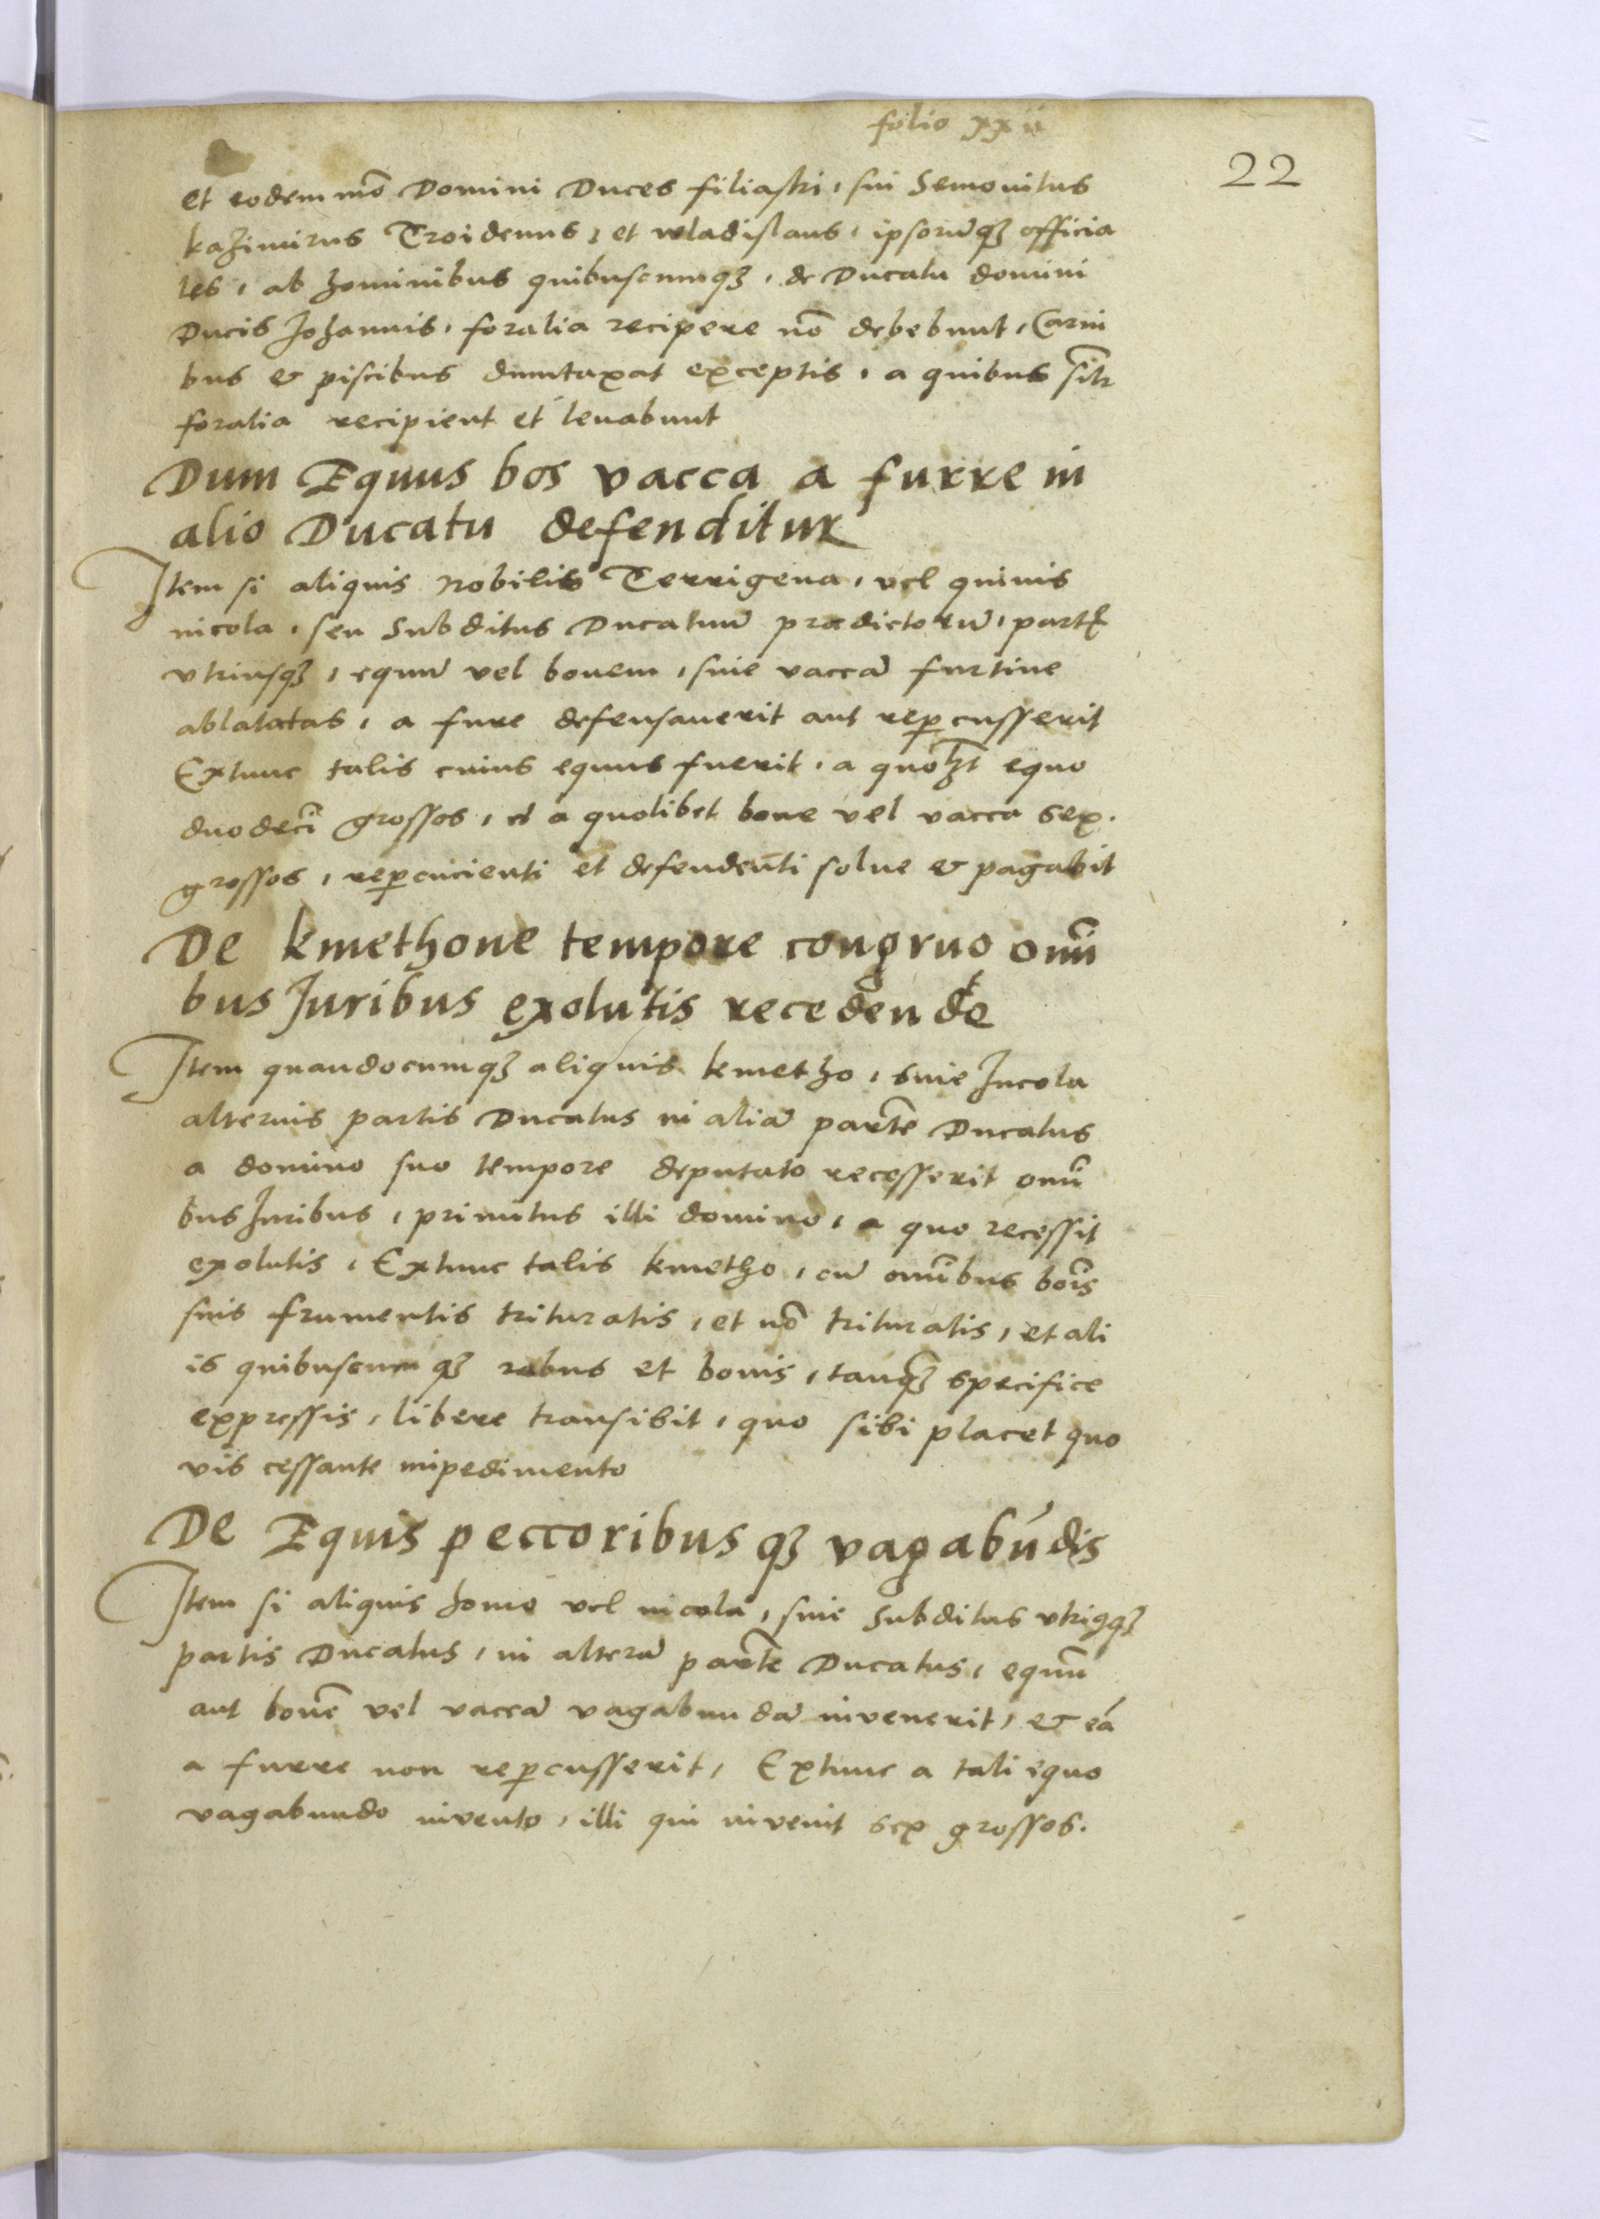 folio xxii
22
et eodem mō Domini Duces filiastri, sui Semovitus
kazimirus Troidenus, et wladislaus, ipsorūqꝫ officia
les, ab hominibus quibuscumqꝫ, de Ducatu domini
Ducis Johannis, foralia recipere nō debebunt, Carni
bus & piscibus dumtaxat exceptis, a quibus sīlr
foralia recipient et levabunt
Dum Equus bos vacca a furre in
alio Ducatu defenditur
Item si aliquis Nobilis Terrigena, vel quivis
incola, seu Subditus Ducatuū prædictorū, partꝭ
vtriusqꝫ, equū vel bovem, sive vaccā furtive
ablatatas, a fure defensaverit aut reꝑcusserit
Extunc talis cuius equus fuerit, a quolꝫt equo
duodecī grossos, et a quolibet bove vel vacca sex.
grossos, reꝑcucienti et defendenti solve & pagabit
De kmethone tempore congruo omī
bus Juribus exolutis recedende
Item quandocumqꝫ aliquis kmetho, sive Incola
alterius partis Ducatus in aliā partē Ducatus
a domino suo tempore deputato recesserit omī
bus Juribus, primitus illi domino, a quo recessit
exolutis, Extunc talis kmetho, cū omībus boīs
suis frumentis trituratis, et nō trituratis, et ali
is quibuscumqꝫ rebus et bonis, tanqꝫ specifice
expressis, libere transibit, quo sibi placet quo
vis cessante impedimento
De Equis peccoribusqꝫ vagabūdis
Item si aliquis homo vel incola, sive Subditus vtriqqꝫ
partis Ducatus, in alterā partē Ducatus, equū
aut bovē vel vaccā vagabundā invenerit, & eā
a furre non reꝑcusserit, Extunc a tali equo
vagabundo invento, illi qui invenit sex grossos.